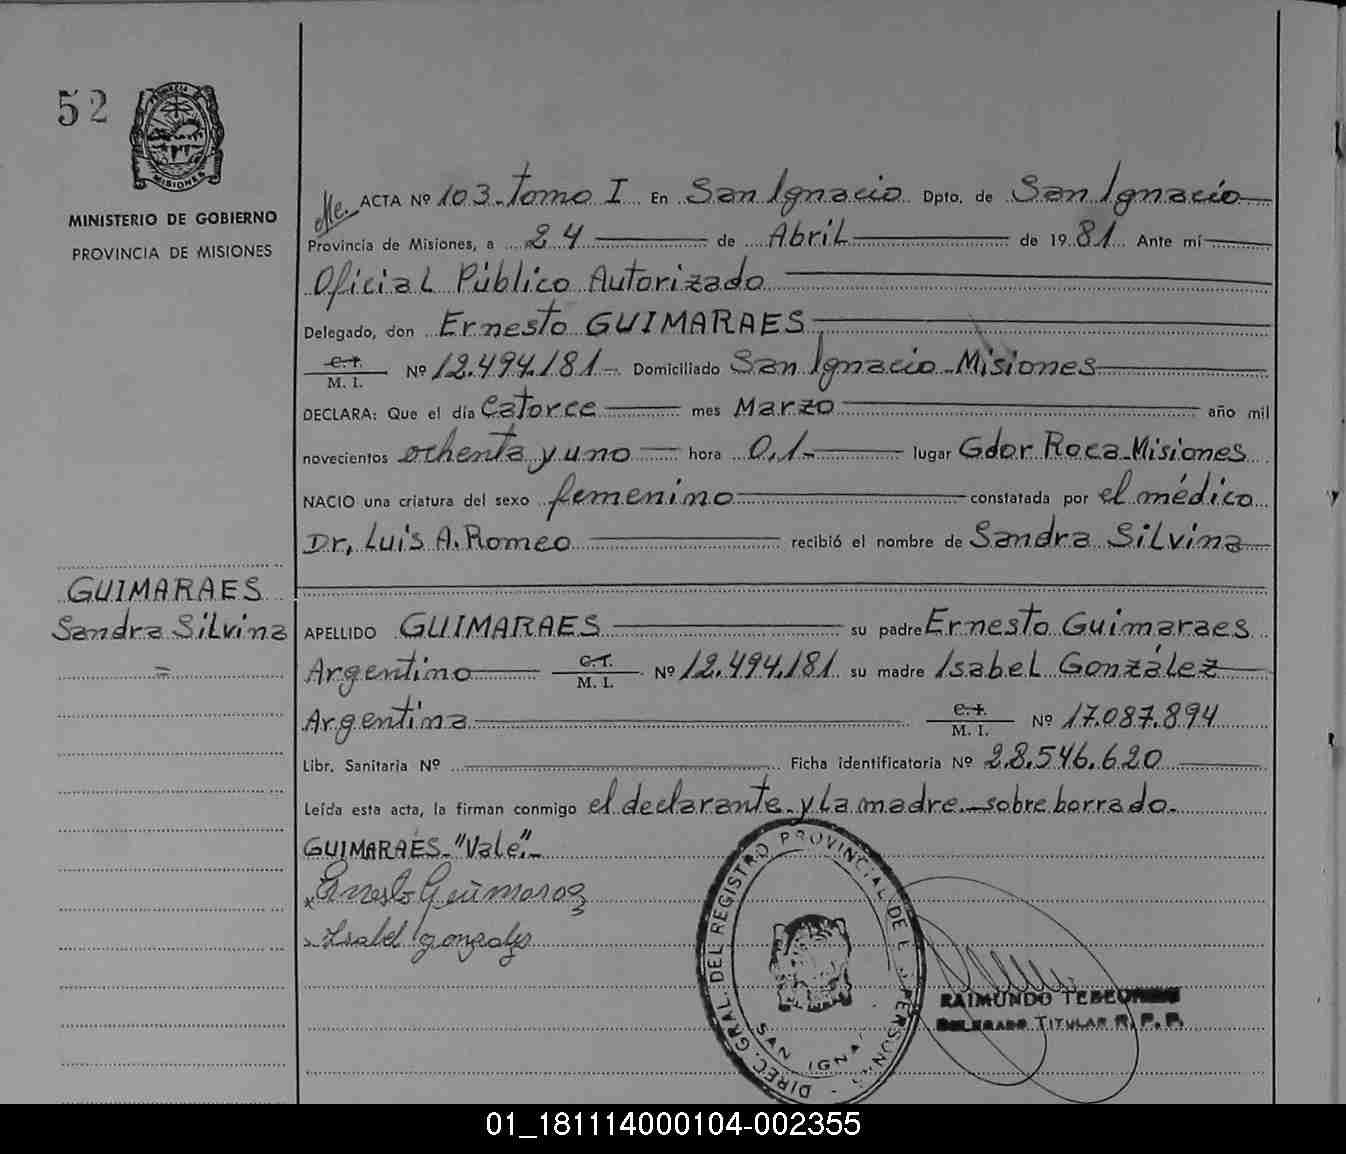 52
PROVINCIA DE
MISIONES
MINISTERIO DE GOBIERNO
PROVINCIA DE MISIONES
GUIMARAES
Sandra Silvina
=
ACTA Nº 103. Tomo I En San Ignacio Dpto. de San Ignacio
Provincia de Misiones, a 24 de Abril de 1981 Ante mí
Oficial Público Autorizado
Delegado, don Ernesto GUIMARAES
C.I.
M. I. Nº 12.494.181- Domiciliado San Ignacio-Misiones
DECLARA: Que el día Catorce mes Marzo año mil
novecientos ochenta y uno hora 0,1- lugar Gdor Roca-Misiones
NACIO una criatura del sexo femenino constatada por el médico
Dr, Luis A. Romeo recibió el nombre de Sandra Silvina
APELLIDO GUIMARAES su padre Ernesto Guimaraes
Argentino C.I. M. I. Nº 12.494.181 su madre Isabel González
Argentina C.I. M. I. Nº 17.087.894
Libr. Sanitaria Nº Ficha identificatoria Nº 28.546.620
Leída esta acta, la firman conmigo el declarante y la madre.-sobre borrado-
GUIMARAES-"Vale".-
Ernesto Guimaroes
Isabel gonzales
DIREC. GRAL. DEL REGISTRO PROVINCIAL DE
SAN IGNA
RAIMUNDO
DELEGADO TITULAR R. P. P.
01_181114000104-002355